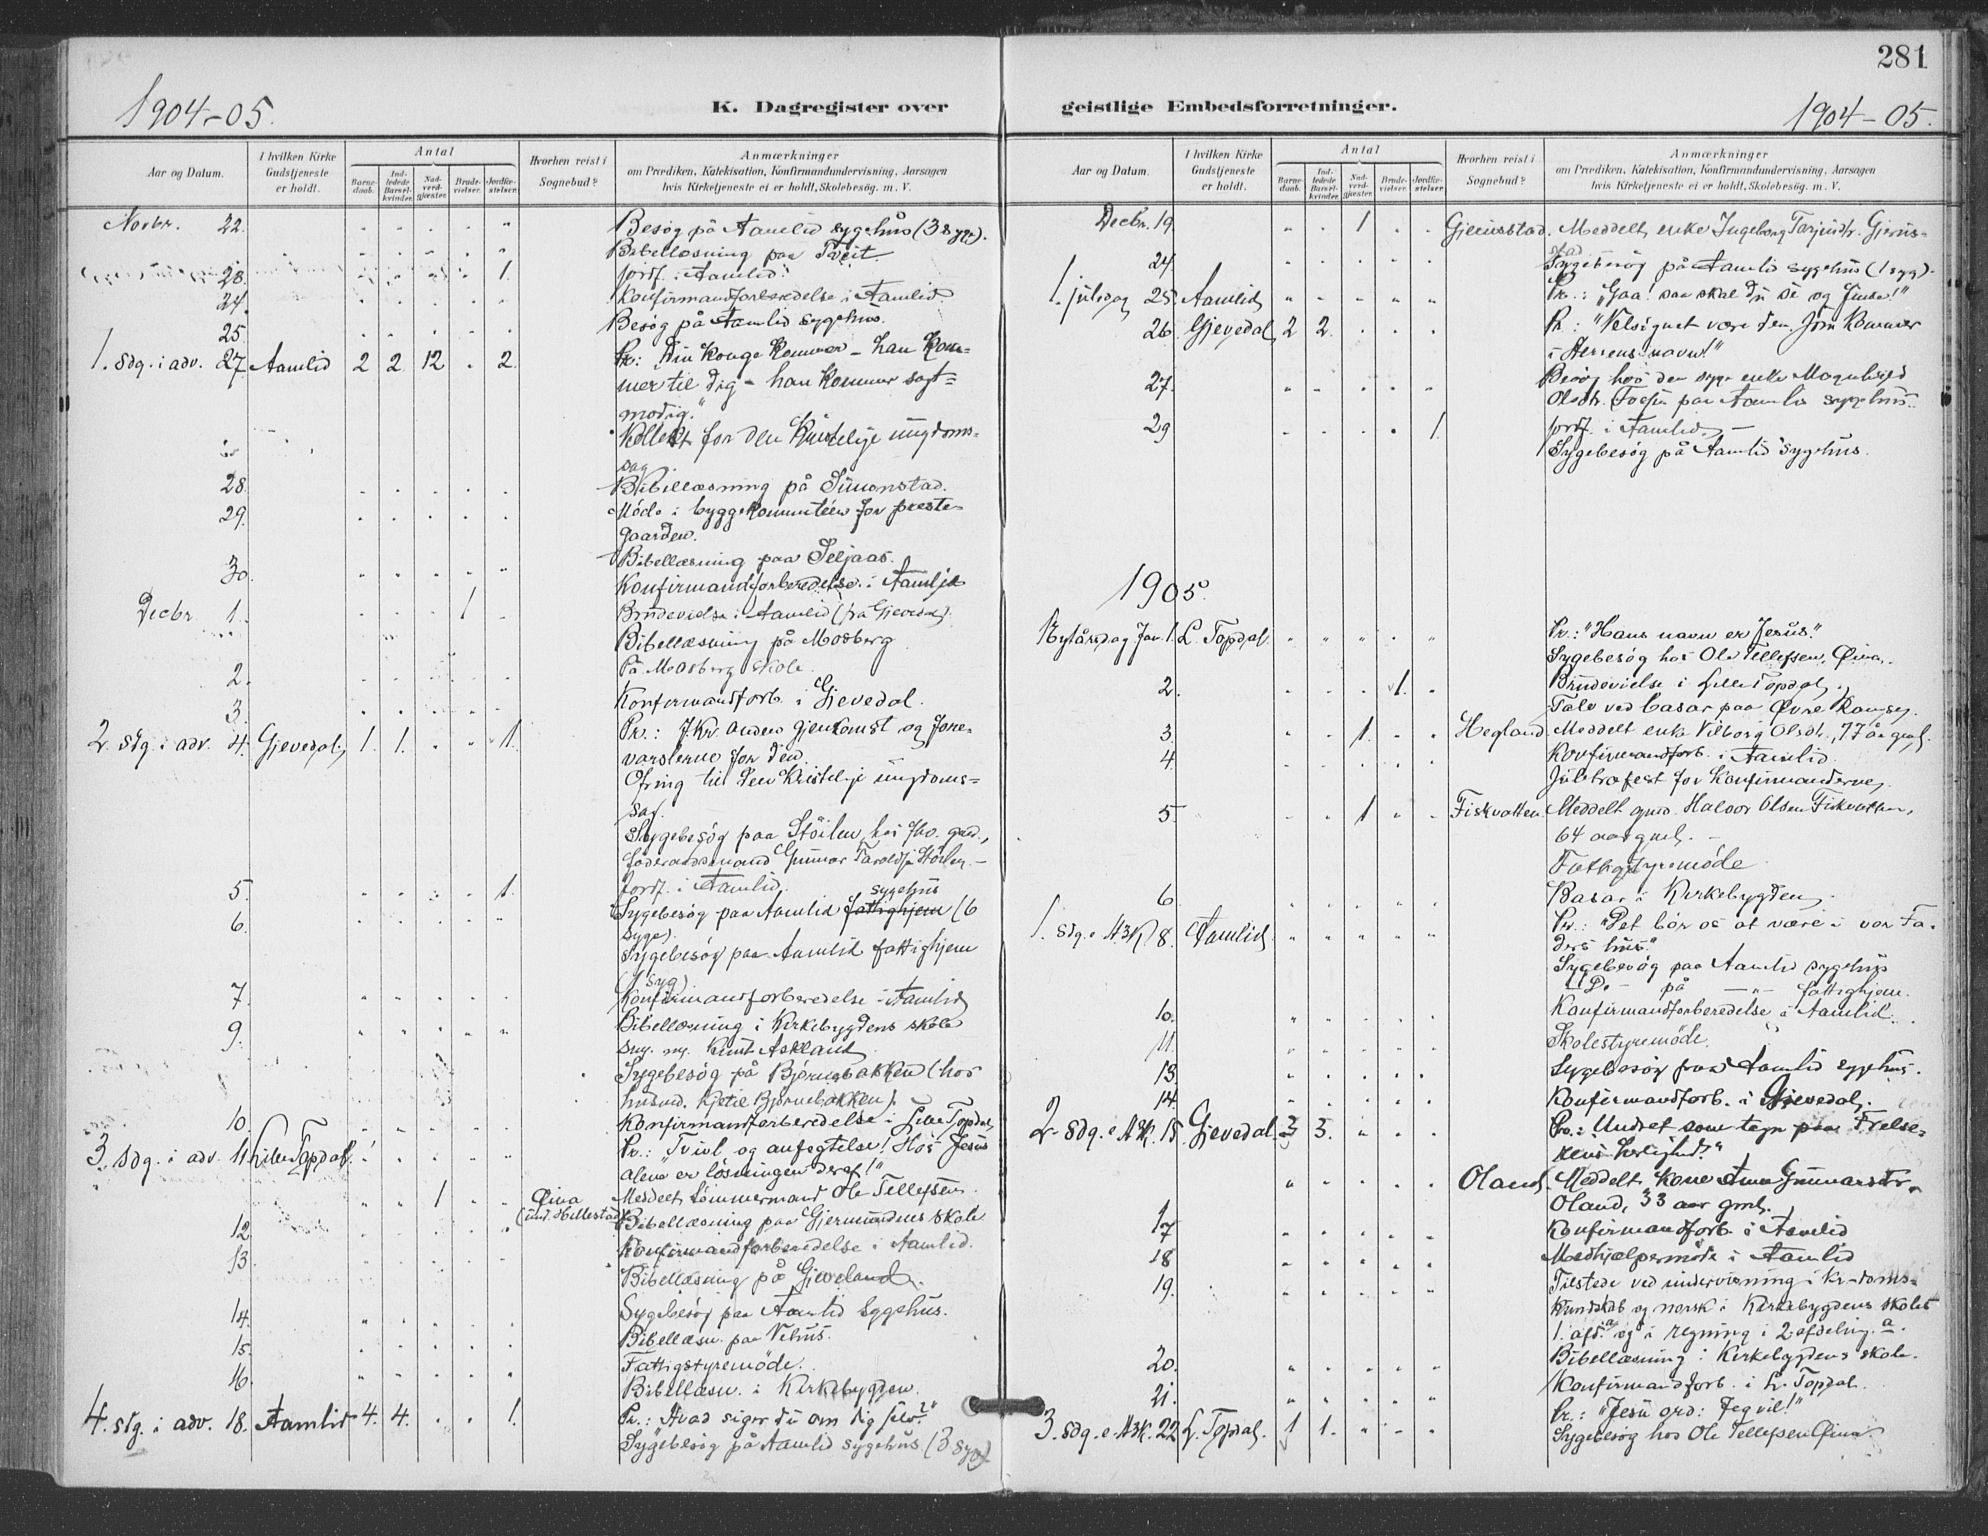 281
1904-05.
K. Dagregister over
geistlige Embedsforretninger.
1904-05.
Aar og Datum.
I hvilken Kirke Gudstjeneste er holdt.
Antal
Barnedaab.
Indledede Barselkvinder.
Nadverdgjæster.
Brudevielser.
Jordfæstelser.
Hvorhen reist i Sognebud?
Anmærkninger
om Prædiken, Katekisation, Konfirmandundervisning, Aarsagen
hvis Kirketjeneste ei er holdt, Skolebesøg. m. V.
Novbr. 22. Besøg på Aamlid sygehus (3 syge).
Bibellæsning paa Tveit
23. 1. Jordf. i Aamlid.
24. Konfirmandforberedelse i Aamlid
25. Besøg på Aamlid sygehus.
1. sdg. i adv. 27. Aamlid 2 2 12 2. Pr.: "Din Konge kommer – han kom-
mer til dig – han kommer sagt-
modig."
Kollekt for den kristelige ungdoms-
sag.
28. Bibellæsning på Simonstad.
29. Møde i byggekommitéen for preste-
gaarden.
Bibellæsning paa Seljaas.
30. Konfirmandforberedelse i Aamlid
Decbr 1. 1 Brudevielse i Aamlid (fra Gjevedal).
Bibellæsning på Mosberg
2. På Mosberg skole.
3. Konfirmandforb. i Gjevedal.
2. sdg. i adv. 4. Gjevedal, 1. 1. 1. Pr.: J. Kr. anden gjenkomst, og fore-
varslerne for den.
Ofring til den kristelige ungdoms-
sag.
Sygebesøg paa Stöilen, hos fhv. grd.,
föderaadsmand Gunnar Taroldsen Stöilen. –
5. 1. Jordf. i Aamlid.
6. Sygebesøg paa Aamlid sygehus (6
syge).
Sygebesøg paa Aamlid fattighjem
(1 syg).
7. Konfirmandforberedelse i Aamlid
9. Bibellæsning i Kirkebygdens skole
Knut Askland
Sygebesøg på Bjørnebakken (hos
husmd. Kjetil Bjørnebakken).
10. Konfirmandforberedelse i Lille Topdal,
3. sdg. i adv. 11. Lille Topdal. Pr.: "Tvivl og anfegtelse! Hos Jesus
alene er løsningen deraf!"
1 Øina (und. Hillestad) Meddelt tömmermand Ole Tellefsen.
12. Bibellæsning paa Gjermundens skole
Konfirmandforberedelse i Aamlid.
13. Bibellæsning på Gjeveland.
14. Sygebesøg paa Aamlid sygehus.
15. Bibellæsn. paa Vehus.
16. Fattigstyremöde.
Bibellæsn. i Kirkebygden.
4. sdg. i adv. 18. Aamlid 4. 4. 1. Pr.: "Hvad siger du om dig selv?"
Sygebesøg på Aamlid sygehus (3 syge)
Aar og Datum.
I hvilken Kirke Gudstjeneste er holdt.
Antal
Barnedaab.
Indledede Barselkvinder.
Nadverdgjæster.
Brudevielser.
Jordfæstelser.
Hvorhen reist i Sognebud?
Anmærkninger
om Prædiken, Katekisation, Konfirmandundervisning, Aarsagen
hvis Kirketjeneste ei er holdt, Skolebesøg. m. V.
Decbr. 19. 1 Meddelt enke Ingeborg Tarjeisdtr. Gjerus-
stad
24 Sygebesøg på Aamlid sygehus (1 syg).
1. juledag 25. Aamlid Pr.: "Gaa! saa skal du se og finde!"
26. Gjevedal, 2 2. Pr.: "Velsignet være den, som kommer
i Herrens navn!"
27. Besøg hos den syge enke
Olsdtr. paa Aamlid sygehus.
29 1. Jordf. i Aamlid. –
Sygebesøg på Aamlid sygehus.
1905.
Nytårsdag Jan. 1. L. Topdal. Pr.: "Hans navn er Jesus."
Sygebesøg hos Ole Tellefsen, Øina.
2. 1. Brudevielse i Lille Topdal.
Tale ved basar paa Øvre Ramse.
3. 1. Hegland. Meddelt enke Vilborg Olsdtr., 77 år gml.
4. Konfirmandforb. i Aamlid.
Juletræfest for konfirmanderne,
5. 1 Fiskvatten. Meddelt grd. Halvor Olsen Fiskvatten,
64 aar gml. –
Fattigstyremöde
6. Basar i Kirkebygden.
1. sdg. e. H3K 8. Aamlid. Pr.: "Det bør os at være i vor Fa-
ders hus."
Sygebesøg paa Aamlid sygehus
– Do – på – " – fattighjem.
10. Konfirmandforberedelse i Aamlid.
11. Skolestyremøde.
13. Sygebesøg paa Aamlid sygehus.
14. Konfirmandforb. i Gjevedal,
2. sdg. e. H3K. 15. Gjevedal, 3 3. Pr.: Undret som tegn paa Frelse-
rens herlighed."
Oland. Meddelt kone Anna Gunnarsdtr.
Oland, 33 aar gml.
17 Konfirmandforb. i Aamlid
18 Medhjælpermöde i Aamlid
19. Tilstede ved undervisning i kr-doms-
kundskab og norsk i Kirkebygdens skoles
1. afd. a og i regning i 2. afdeling. a.
20. Bibellæsning i Kirkebygdens skole.
21. Konfirmandforb. i L. Topdal.
3. sdg. e. H3K. 22 L. Topdal. 1 1. Pr.: "Jesu ord: Jeg vil!"
Sygebesøg hos Ole Tellefsen Øina